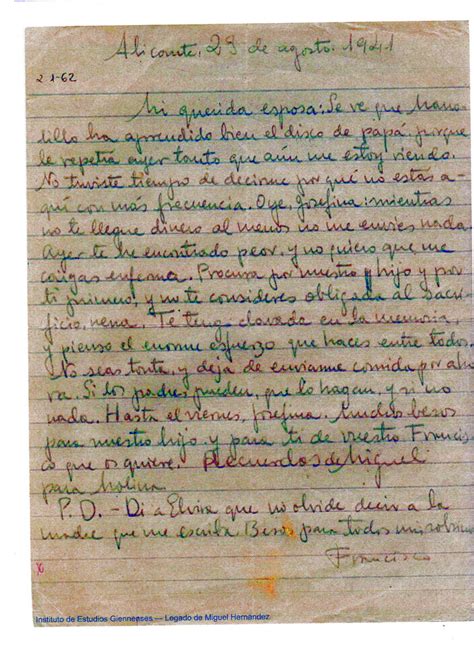 Alicante, 23 de agosto. 1941
2 1-62
Mi querida esposa: Se ve que Mano-
lillo ha aprendido bien el disco de papá, porque
le repetía ayer tanto que aún me estoy riendo.
No tuviste tiempo de decirme por qué no estás a-
quí con más frecuencia. Oye, Josefina: mientras
no te llegue dinero al menos no me envíes nada.
Ayer te he encontrado peor, y no quiero que me
caigas enferma. Procura por nuestro hijo y por
ti primero, y no te consideres obligada al sacri-
ficio, nena. Te tengo clavada en la memoria,
y pienso el enorme esfuerzo que haces entre todos.
No seas tonta, y deja de enviarme comida por aho-
ra. Si los padres pueden, que lo hagan, y si no
nada. Hasta el viernes, Josefina. Muchos besos
para nuestro hijo y para ti de vuestro Francis-
co que os quiere. Recuerdos de Miguel
para Molina
P.D.- Di a Elvira que no olvide decir a la
madre que me escriba Besos para todos mis sobrinos
Francisco
Instituto de Estudios Giennenses — Legado de Miguel Hernández